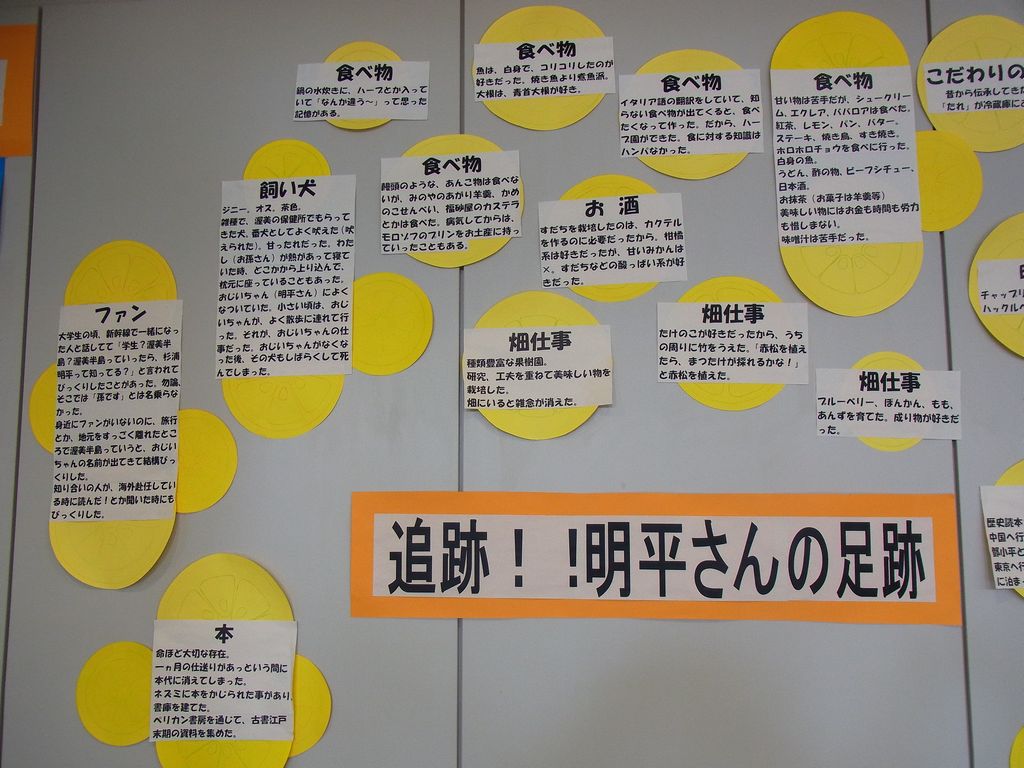 食べ物
鍋の水炊きに、ハーブとか入って
いて「なんか違う〜」って思った
記憶がある。
食べ物
魚は、白身で、コリコリしたのが
好きだった。焼き魚より煮魚派。
大根は、青首大根が好き。
食べ物
イタリア語の翻訳をしていて、知
らない食べ物が出てくると、食べ
たくなって作った。だから、ハー
ブ園ができた。食に対する知識は
ハンパなかった。
食べ物
甘い物は苦手だが、シュークリー
ム、エクレア、ババロアは食べた。
紅茶、レモン、パン、バター。
ステーキ、焼き鳥、すき焼き。
ホロホロチョウを食べに行った。
白身の魚。
うどん、酢の物、ビーフシチュー、
日本酒。
お抹茶（お菓子は羊羹等）
美味しい物にはお金も時間も労力
も惜しまない。
味噌汁は苦手だった。
こだわりの
昔から伝承してきた
「たれ」が冷蔵庫に
飼い犬
ジニー。オス、茶色。
雑種で、渥美の保健所でもらって
きた犬。番犬としてよく吠えた（吠
えられた）。甘ったれだった。わた
し（お孫さん）が熱があって寝て
いた時、どこからか上り込んで、
枕元に座っていることもあった。
おじいちゃん（明平さん）によく
なついていた。小さい頃は、おじ
いちゃんが、よく散歩に連れて行
った。それが、おじいちゃんの仕
事だった。おじいちゃんがなくな
った後、その犬もしばらくして死
んでしまった。
食べ物
饅頭のような、あんこ物は食べな
いが、みのやのあがり羊羹、かめ
のこせんべい、福砂屋のカステラ
とかは食べた。病気してからは、
モロゾフのプリンをお土産に持っ
ていったこともある。
お酒
すだちを栽培したのは、カクテル
を作るのに必要だったから。柑橘
系は好きだったが、甘いみかんは
×。すだちなどの酸っぱい系が好
きだった。
ファン
大学生の頃、新幹線で一緒になっ
た人と話してて「学生？渥美半
島？渥美半島っていったら、杉浦
明平って知ってる？」と言われて
びっくりしたことがあった。勿論、
そこでは「孫です」とは名乗らな
かった。
身近にファンがいないのに、旅行
とか、地元をすっごく離れたとこ
ろで渥美半島っていうと、おじい
ちゃんの名前が出てきて結構びっ
くりした。
知り合いの人が、海外赴任してい
る時に読んだ！とか聞いた時にも
びっくりした。
畑仕事
種類豊富な果樹園。
研究、工夫を重ねて美味しい物を
栽培した。
畑にいると雑念が消えた。
畑仕事
たけのこが好きだったから、うち
の周りに竹をうえた。「赤松を植え
たら、まつたけが採れるかな！」
と赤松を植えた。
畑仕事
ブルーベリー、ぽんかん、もも、
あんずを育てた。成り物が好きだ
った。
チャップリ
ハックル
追跡！！明平さんの足跡
歴史読本
中国へ行
鄧小平と
東京へ行
に泊ま
本
命ほど大切な存在。
一ヵ月の仕送りがあっという間に
本代に消えてしまった。
ネズミに本をかじられた事があり、
書庫を建てた。
ペリカン書房を通じて、古書江戸
末期の資料を集めた。